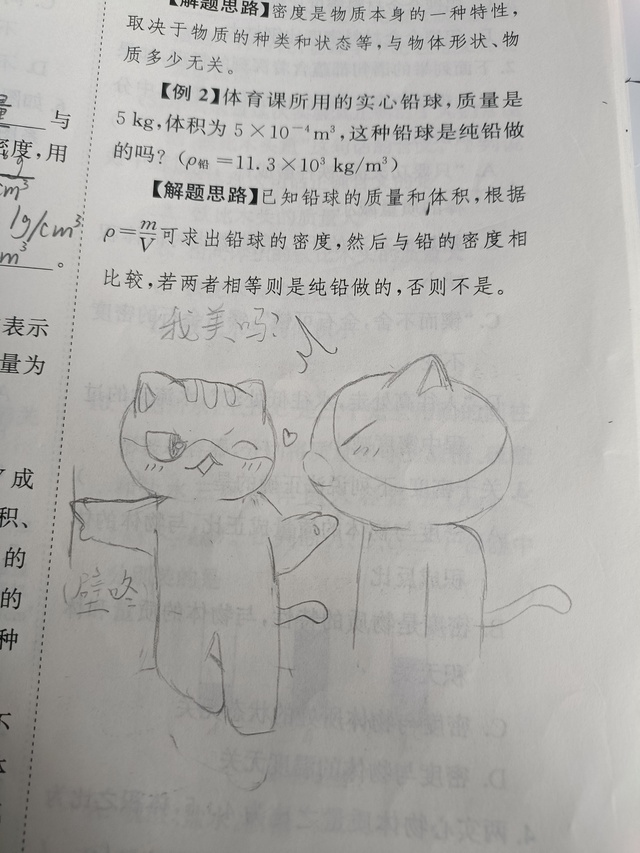 【解题思路】密度是物质本身的一种特性，
取决于物质的种类和状态等，与物体形状、物
质多少无关。
【例2】体育课所用的实心铅球，质量是
5 kg，体积为 5×10⁻⁴m³，这种铅球是纯铅做
的吗？（ρ铅＝11.3×10³ kg/m³）
【解题思路】已知铅球的质量和体积，根据
ρ＝m/V可求出铅球的密度，然后与铅的密度相
比较，若两者相等则是纯铅做的，否则不是。
我美吗？
（壁咚）
量
与
密度，用
g
cm³
1g/cm³
m³。
表示
量为
成
积、
的
的
种
不